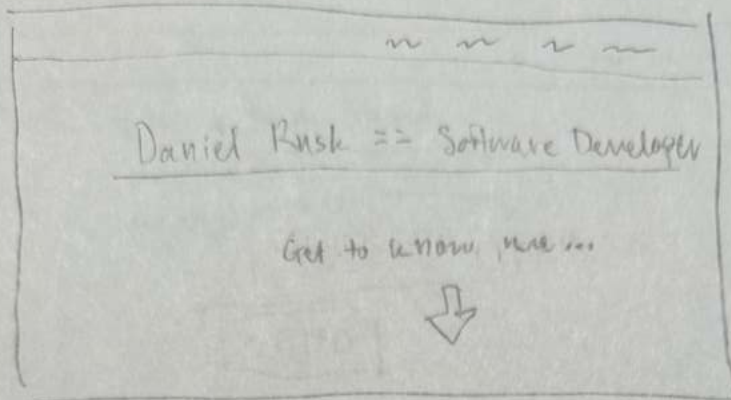 Daniel Rusk == Software Developer
Get to know me...